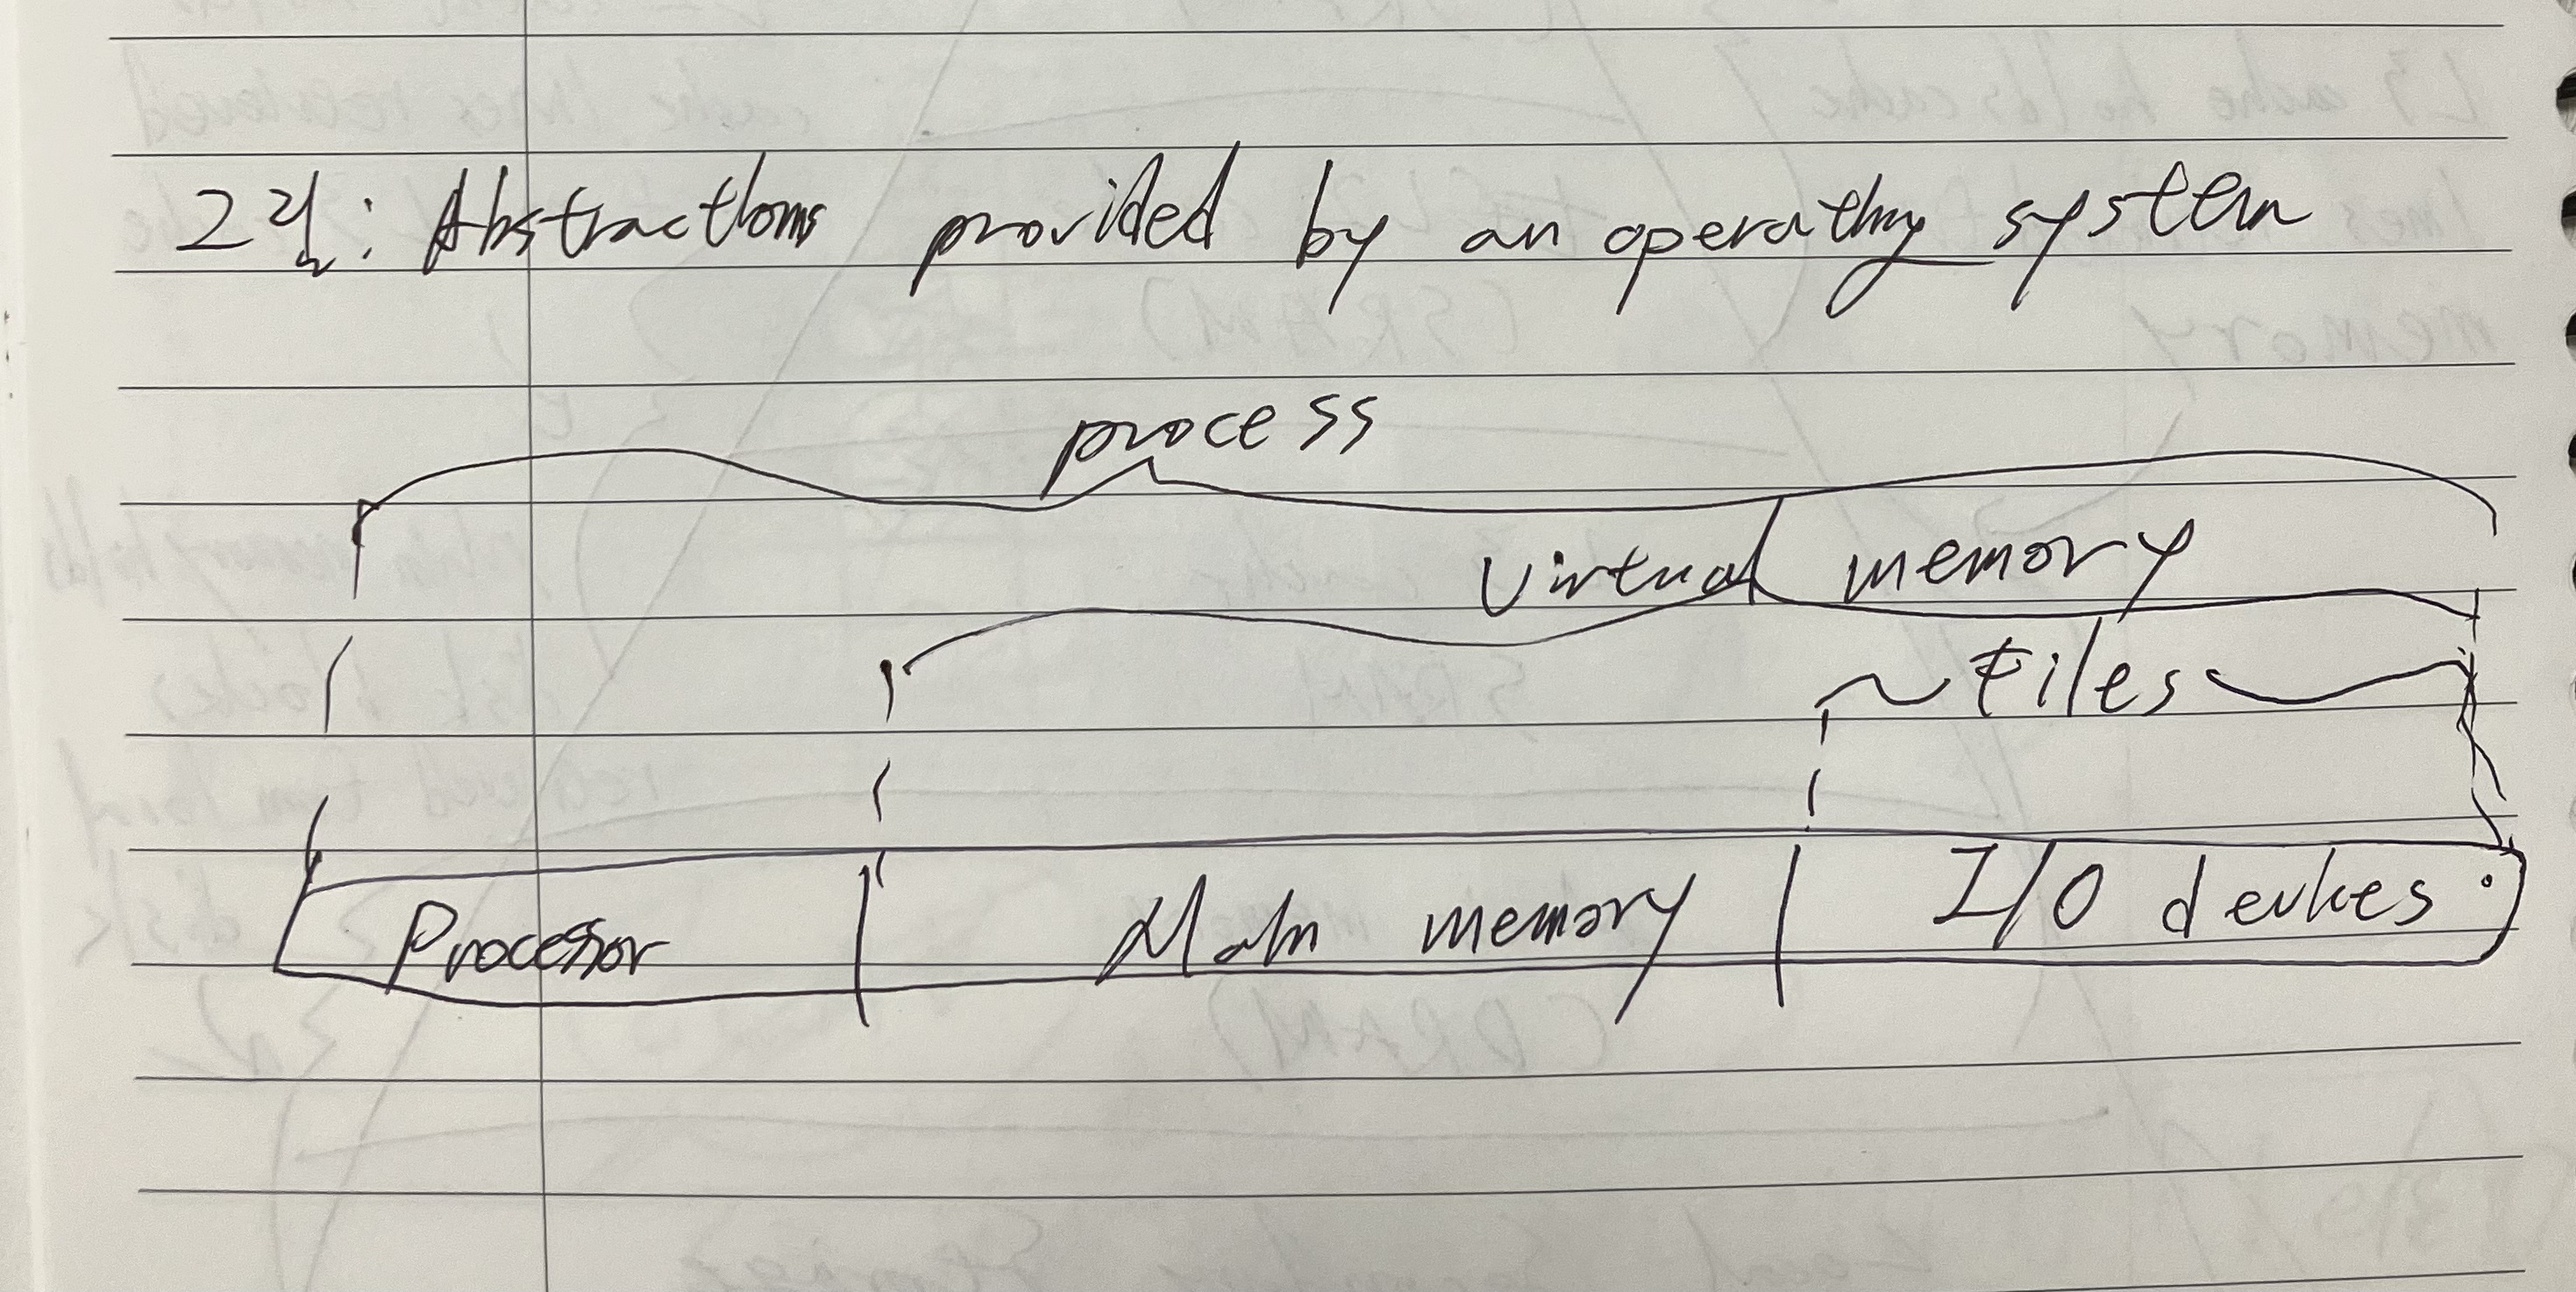 그림: Abstractions provided by an operating system
process
virtual memory
Files
Processor
Main memory
I/O devices